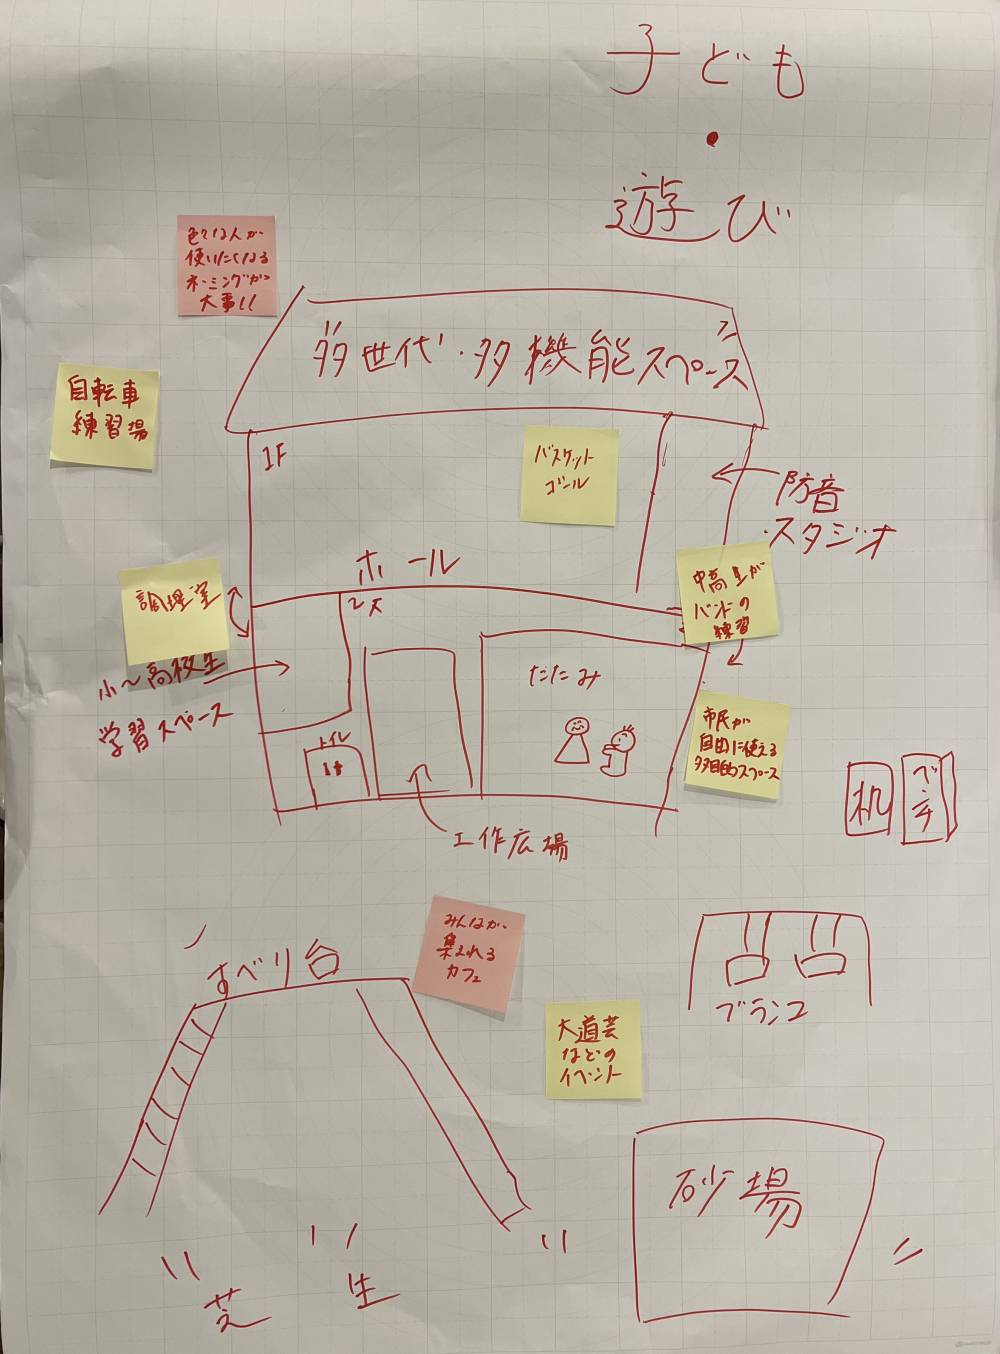 子ども
・
遊び
色々な人が
使いたくなる
ネーミングが
大事!!
多世代・多機能スペース
自転車
練習場
1F
バスケット
ゴール
防音
スタジオ
ホール
調理室
中高生が
バンドの
練習
小〜高校生
学習スペース
たたみ
トイレ
市民が
自由に使える
多目的スペース
机
ベンチ
工作広場
みんなが
集まれる
カフェ
すべり台
ブランコ
大道芸
などの
イベント
砂場
芝生